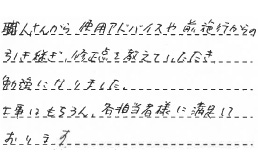 職人さんから使用アドバイスや前施行からの
引き継ぎ、修正点を教えていただき
勉強になりました。
工事はもちろん、各担当者様に満足して
おります